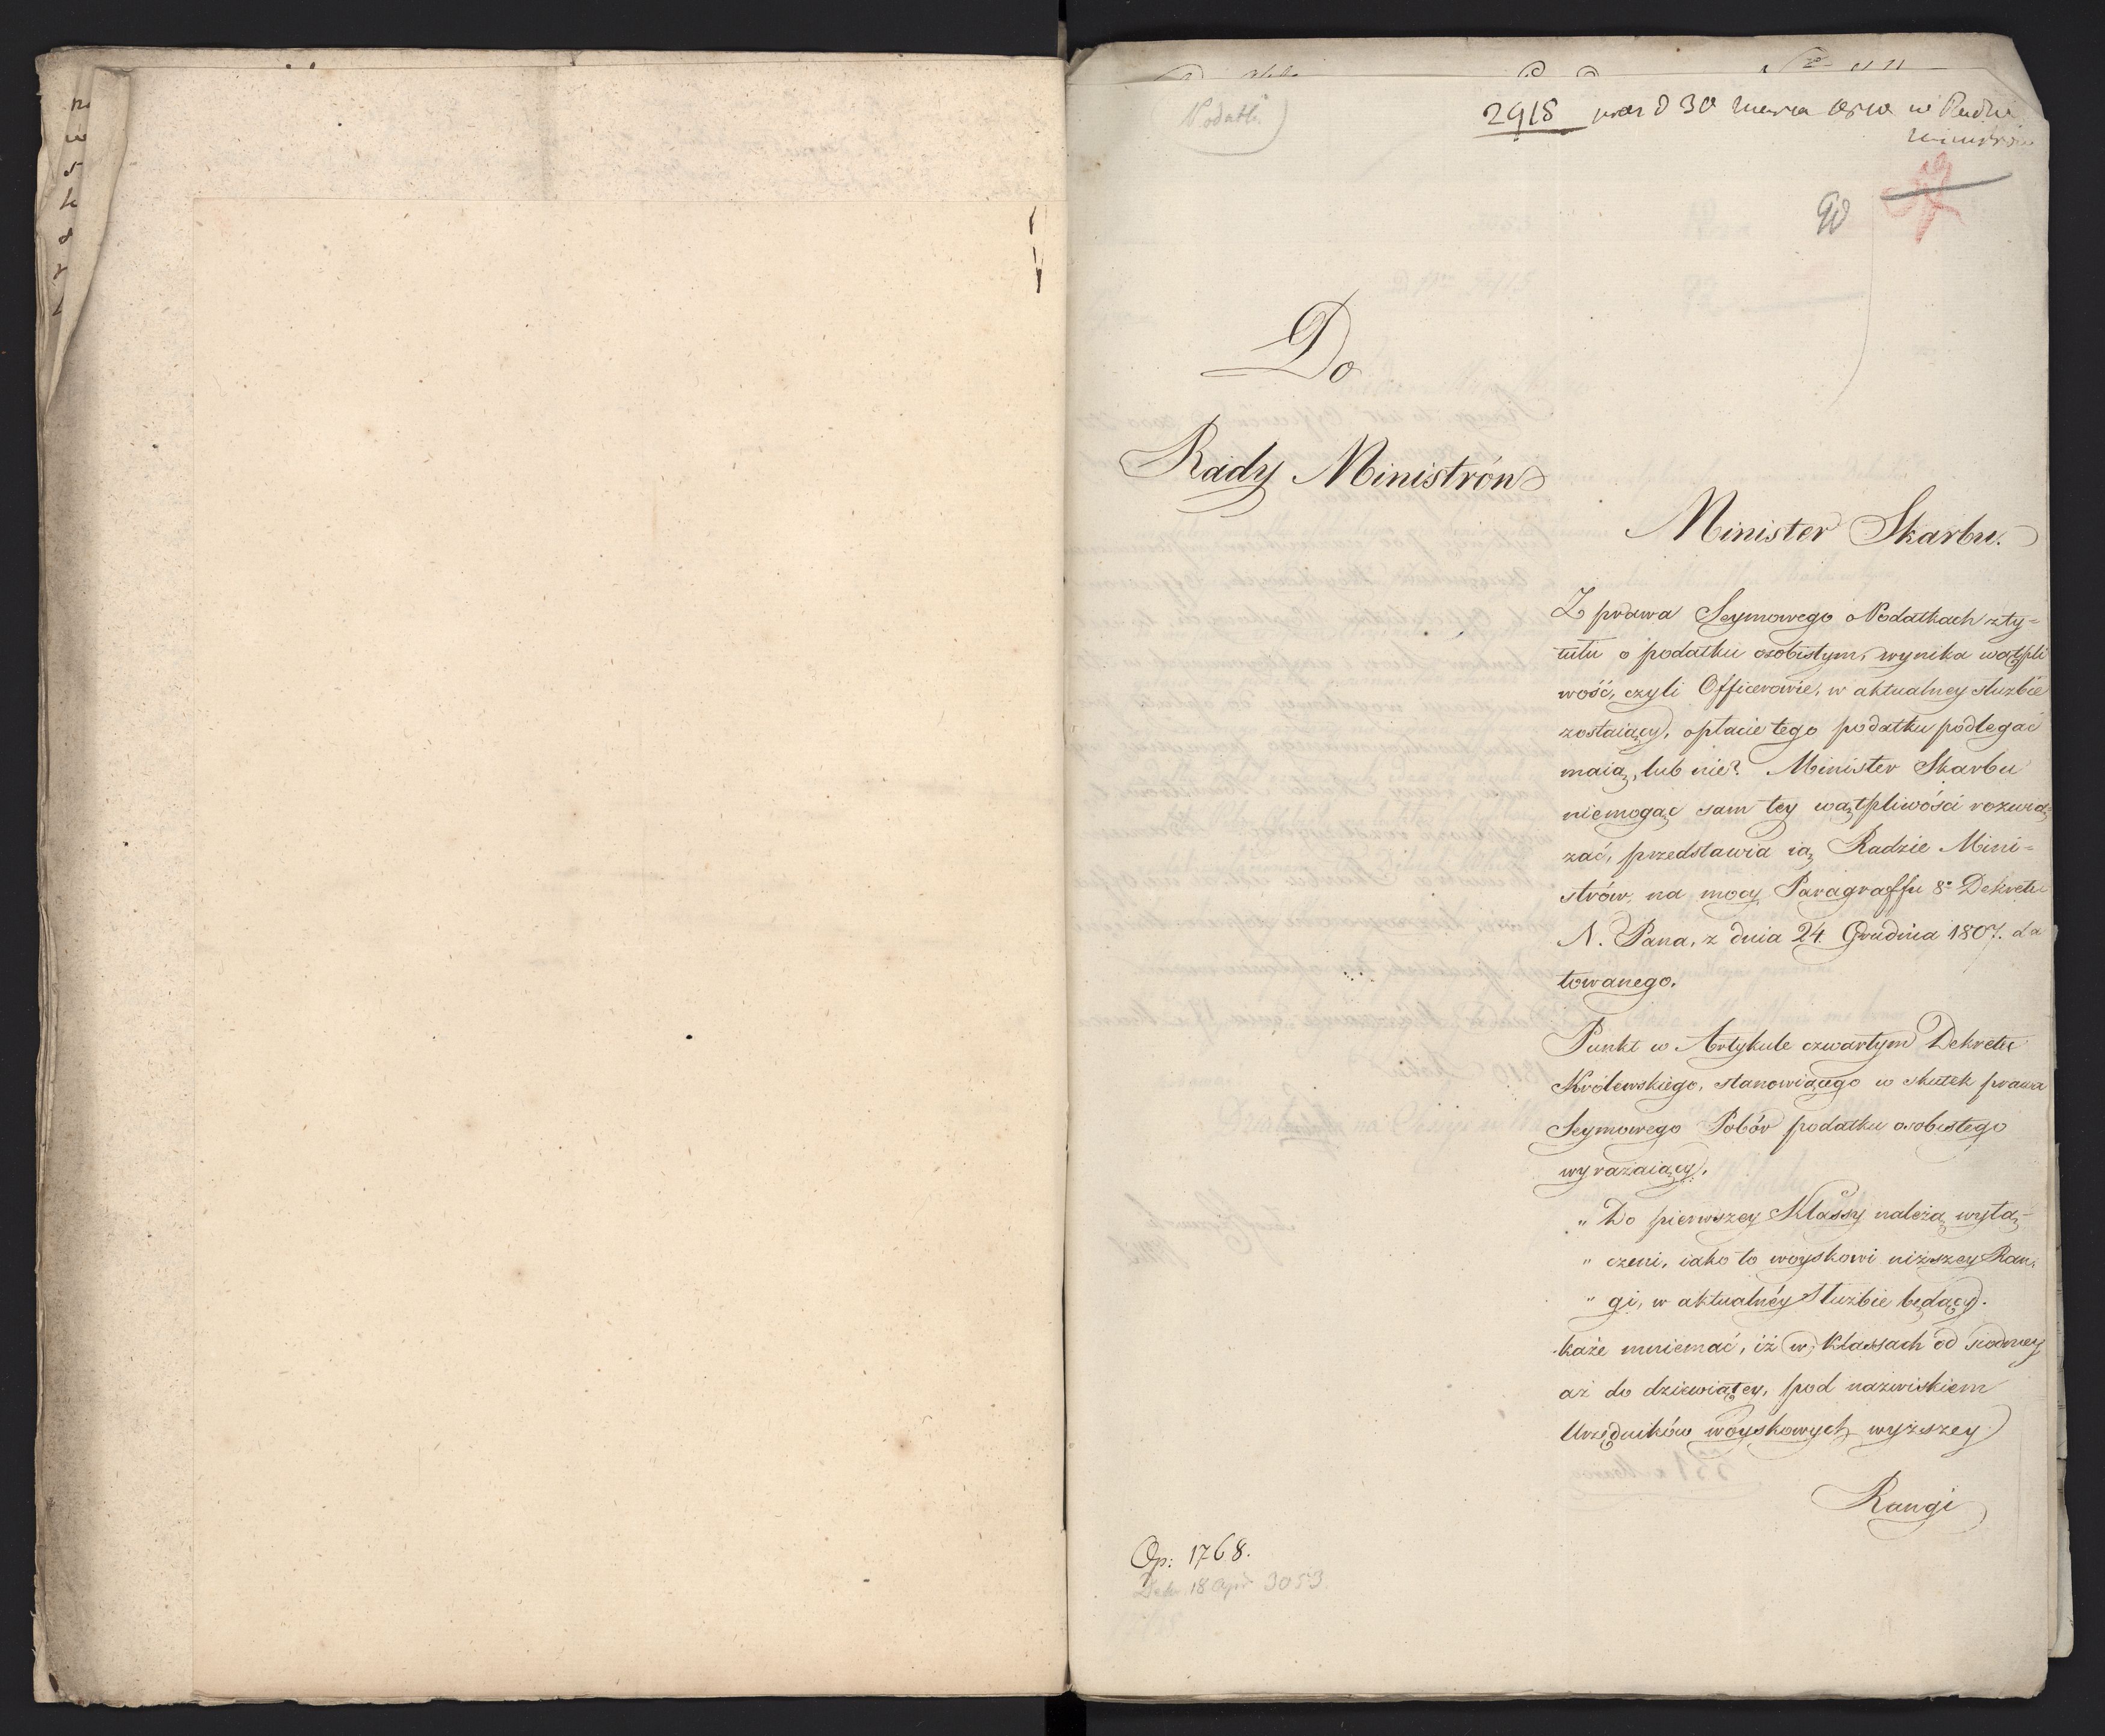 Podatki
2918 d 30 Marca 1810 w Radzie
Ministrów
90
Do
Rady Ministrów
Minister Skarbu.
Z prawa Seymowego o Podatkach z ty=
tułu o podatku osobistym, wynika wątpli
wość, czyli Officerowie, w aktualney służbie
zostaiący, opłacie tego podatku podlegać
maią, lub nie? Minister Skarbu
niemogąc sam tey wątpliwości rozwią=
zać, przedstawia ią Radzie Mini=
strów, na mocy Paragraffu 8º Dekretu
N. Pana, z dnia 24 Grudnia 1807. da
towanego.
Punkt w Artykule czwartym Dekretu
Królewskiego, stanowiącego w skutek prawa
Seymowego Pobór podatku osobistego
wyrażaiący:
„ Do pierwszey Klassy należą wyłą=
„ czeni, iako to woyskowi niższey Ran=
„ gi, w aktualnéy Służbie będący.
każe mniemać, iż w Klassach od
aż do dziewiątey, pod nazwiskiem
Urzędników woyskowych wyższey
Rangi
Op: 1768.
18 Apr 3053